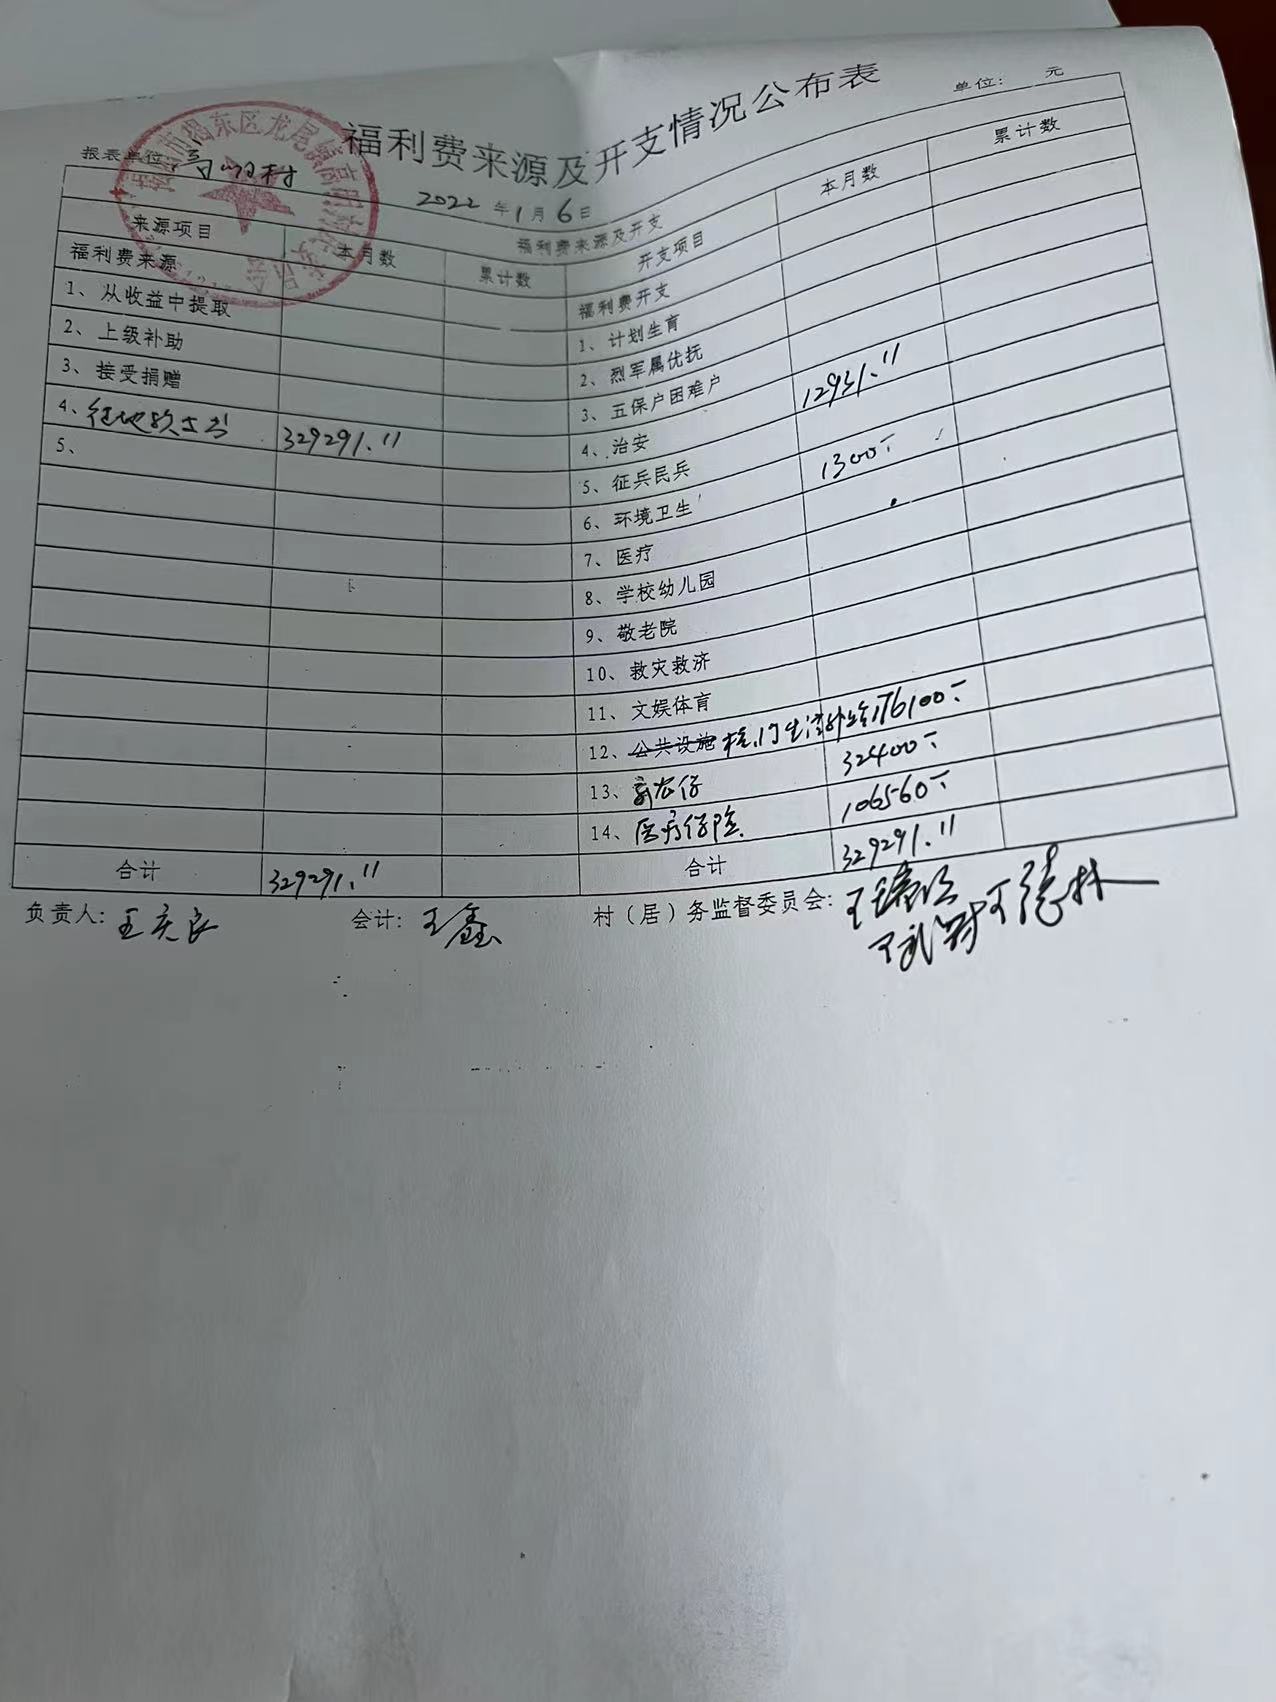 福利费来源及开支情况公布表
报表单位: 高明村
2022年1月6日
单位: 元
福利费来源及开支
来源项目 本月数 累计数 开支项目 本月数 累计数
福利费来源 福利费开支
1、从收益中提取 1、计划生育
2、上级补助 2、烈军属优抚
3、接受捐赠 3、五保户困难户 12931.11
4、征地款 329291.11 4、治安
5、 5、征兵民兵 1300
6、环境卫生
7、医疗
8、学校幼儿园
9、敬老院
10、救灾救济
11、文娱体育
12、公共设施 176100
13、新农保 32400
14、医疗保险 106560
合计 329291.11 合计 329291.11
负责人: 王庆良 会计: 王鑫 村（居）务监督委员会: